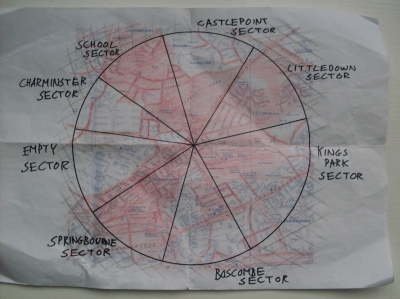 CASTLEPOINT
SECTOR
SCHOOL
SECTOR
LITTLEDOWN
SECTOR
CHARMINSTER
SECTOR
EMPTY
SECTOR
KINGS
PARK
SECTOR
SPRINGBOURNE
SECTOR
BOSCOMBE
SECTOR